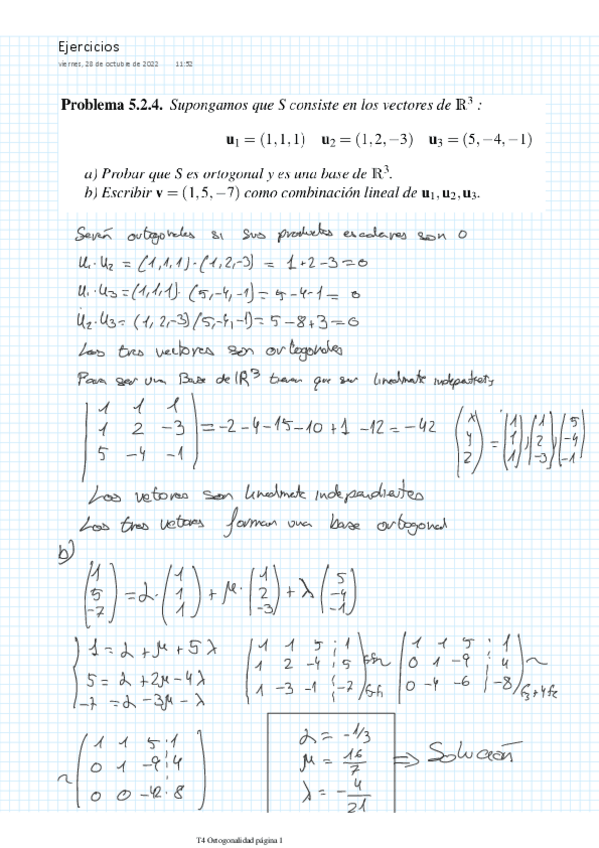 Ejercicios
viernes, 28 de octubre de 2022 11:52
Problema 5.2.4. Supongamos que S consiste en los vectores de ℝ³ :
u₁ = (1,1,1) u₂ = (1,2,−3) u₃ = (5,−4,−1)
a) Probar que S es ortogonal y es una base de ℝ³.
b) Escribir v = (1,5,−7) como combinación lineal de u₁,u₂,u₃.
Serán ortogonales si sus productos escalares son 0
u₁·u₂ = (1,1,1)·(1,2,-3) = 1+2-3=0
u₁·u₃=(1,1,1)·(5,-4,-1)=5-4-1= 0
u₂·u₃=(1,2,-3)(5,-4,-1)=5-8+3=0
Los tres vectores son ortogonales
Para ser una Base de ℝ³ tienen que ser
| 1 1 1 |
| 1 2 -3 | = -2-4-15-10+1-12=-42 (x y z) = (1 1 1), (1 2 -3), (5 -4 -1)
| 5 -4 -1 |
Los vetores son linealmate independientes
Los tres vetores forman una base ortogonal
b)
(1 5 -7) = α·(1 1 1) + μ·(1 2 -3) + λ(5 -4 -1)
1 = α + μ + 5λ (1 1 5 ¦ 1) (1 1 5 ¦ 1)
5 = α + 2μ - 4λ (1 2 -4 ¦ 5) (0 1 -9 ¦ 4) ~
-7 = α - 3μ - λ (1 -3 -1 ¦ -7) (0 -4 -6 ¦ -8) f₃+4f₂
(1 1 5 ¦ 1) α = -1/3
~ (0 1 -9 ¦ 4) μ = 16/7 ⇒ Solución
(0 0 -42 ¦ 8) λ = -4/21
T4 Ortogonalidad página 1